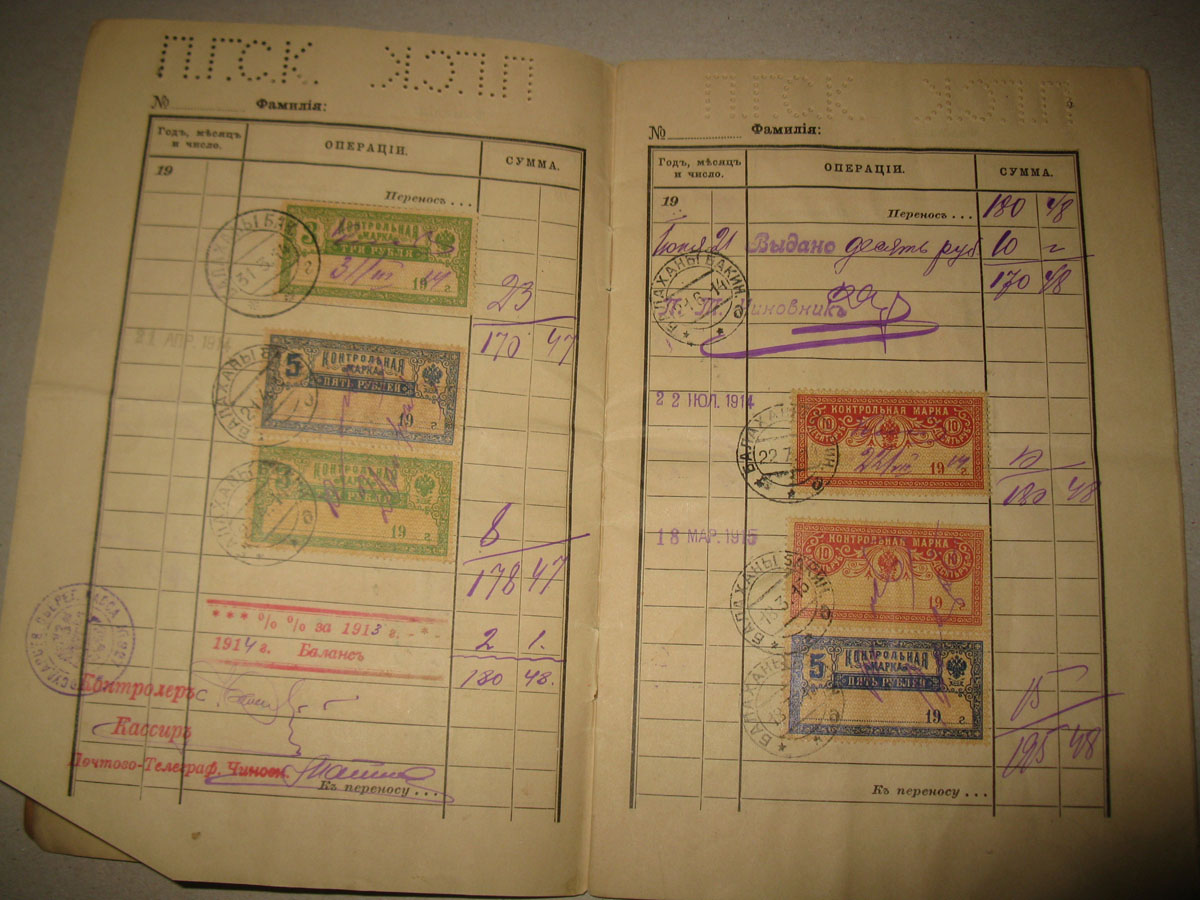 П.Г.С.К.
№ Фамилія:
Годъ, мѣсяцъ и число.
ОПЕРАЦІИ.
СУММА.
19
Переносъ . . .
БАЛАХАНЫ БАК
КОНТРОЛЬНАЯ
МАРКА
ТРИ РУБЛЯ
3
19 г.
23
170 47
21 АПР. 1914
БАЛАХАНЫ
5
КОНТРОЛЬНАЯ
МАРКА
ПЯТЬ РУБЛЕЙ
19 г.
19 г.
8
178 47
* * * % % за 1913 г. - * -
2 1.
1914 г. Балансъ
180 48.
Контролеръ
Кассиръ
Почтово-Телеграф. Чиновн.
Къ переносу . . .
П.Г.С.К.
№ Фамилія:
Годъ, мѣсяцъ и число.
ОПЕРАЦІИ.
СУММА.
19
Переносъ . . .
180 48
Іюня 21 Выдано десять руб 10
170 48
БАЛАХАНЫ БАКИН.
П. Т. Чиновникъ
22 ІЮЛ. 1914
10
КОНТРОЛЬНАЯ МАРКА
10
19 14 г.
БАЛАХАНЫ
22.7
10
180 48
18 МАР. 1915
КОНТРОЛЬНАЯ МАРКА
10
10
19 г.
БАЛАХАНЫ БАКИН.
18.3.15
5
КОНТРОЛЬНАЯ
МАРКА
ПЯТЬ РУБЛЕЙ
19 г.
БАЛАХАНЫ
15
195 48
Къ переносу . . .